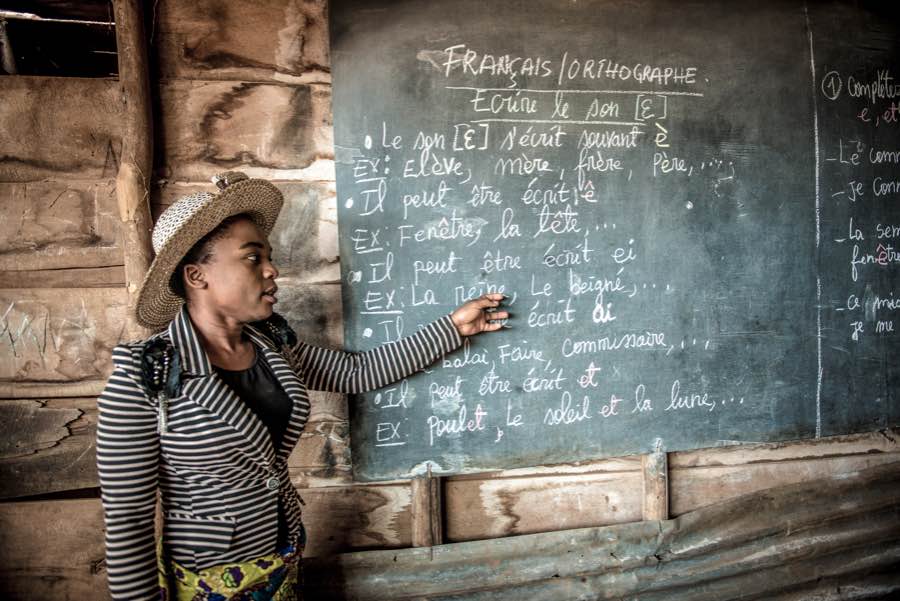 FRANÇAIS/ORTHOGRAPHE.
Ecrire le son [Ɛ]
• Le son [Ɛ] s'écrit souvent è
EX: Elève, mère, frère, Père,.....
• Il peut être écrit ê
EX: Fenêtre, la tête,...
• Il peut être écrit ei
EX: La reine, Le beigné,...
• Il écrit ai
balai, Faire, commissaire,...
• Il peut être écrit et
EX: Poulet, Le soleil et la lune,...
① Complète
e, et
- Le
- Je
- La
fenêtre
- ce
je me